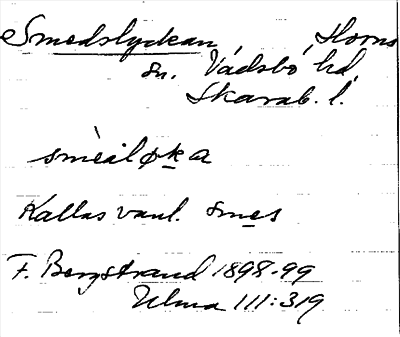 Smedslyckan, Horns
sn. Vadsbo hd,
Skarab. l.
smèȧløka
Kallas vanl. smes
F. Bergstrand 1898-99
Ulma 111:319